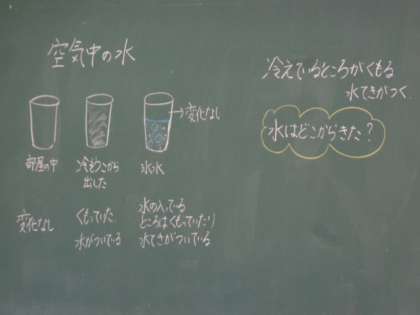 空気中の水
冷えているところがくもる
水てきがつく
水はどこからきた？
→変化なし
部屋の中
冷ぞうこから
出した
氷水
変化なし
くもっていた
水がついている
水の入っている
ところはくもっていたり
水てきがついている